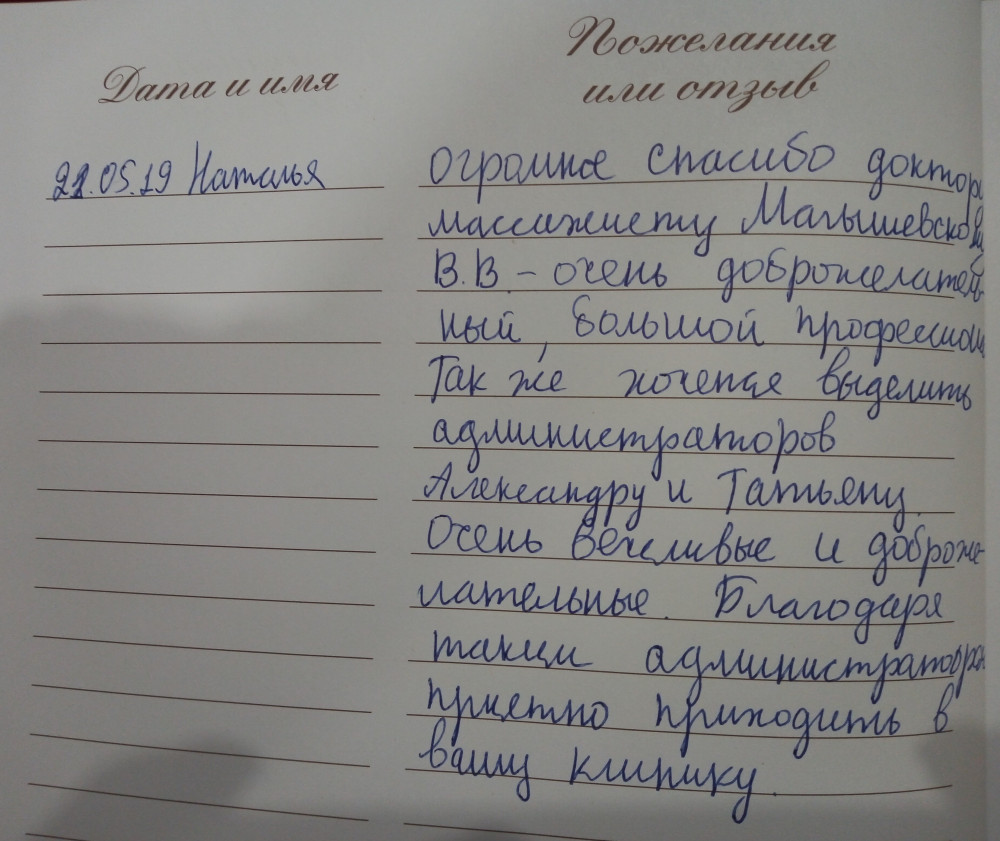 Дата и имя
Пожелания
или отзыв
21.05.19 Наталья
Огромное спасибо доктору
массажисту Малышевскому
В.В. - очень доброжелатель-
ный, большой профессионал
Так же хочется выделить
администраторов
Александру и Татьяну.
Очень вежливые и доброже-
лательные. Благодаря
таким администраторам
приятно приходить в
вашу клинику.